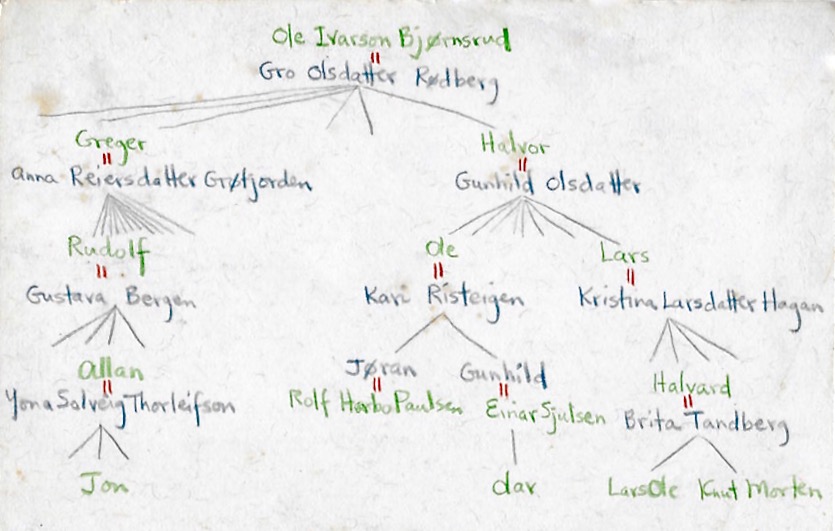 Ole Ivarson Bjørnsrud
Gro Olsdatter Rødberg
Greger Halvor
Anna Reiersdatter Grøtjorden Gunhild Olsdatter
Rudolf Ole Lars
Gustava Bergen Kari Risteigen Kristina Larsdatter Hagan
Allan Jøran Gunhild Halvard
Yona Solveig Thorleifson Rolf Harbo Paulsen Einar Sjulsen Brita Tandberg
Jon dar Lars Ole Knut Morten